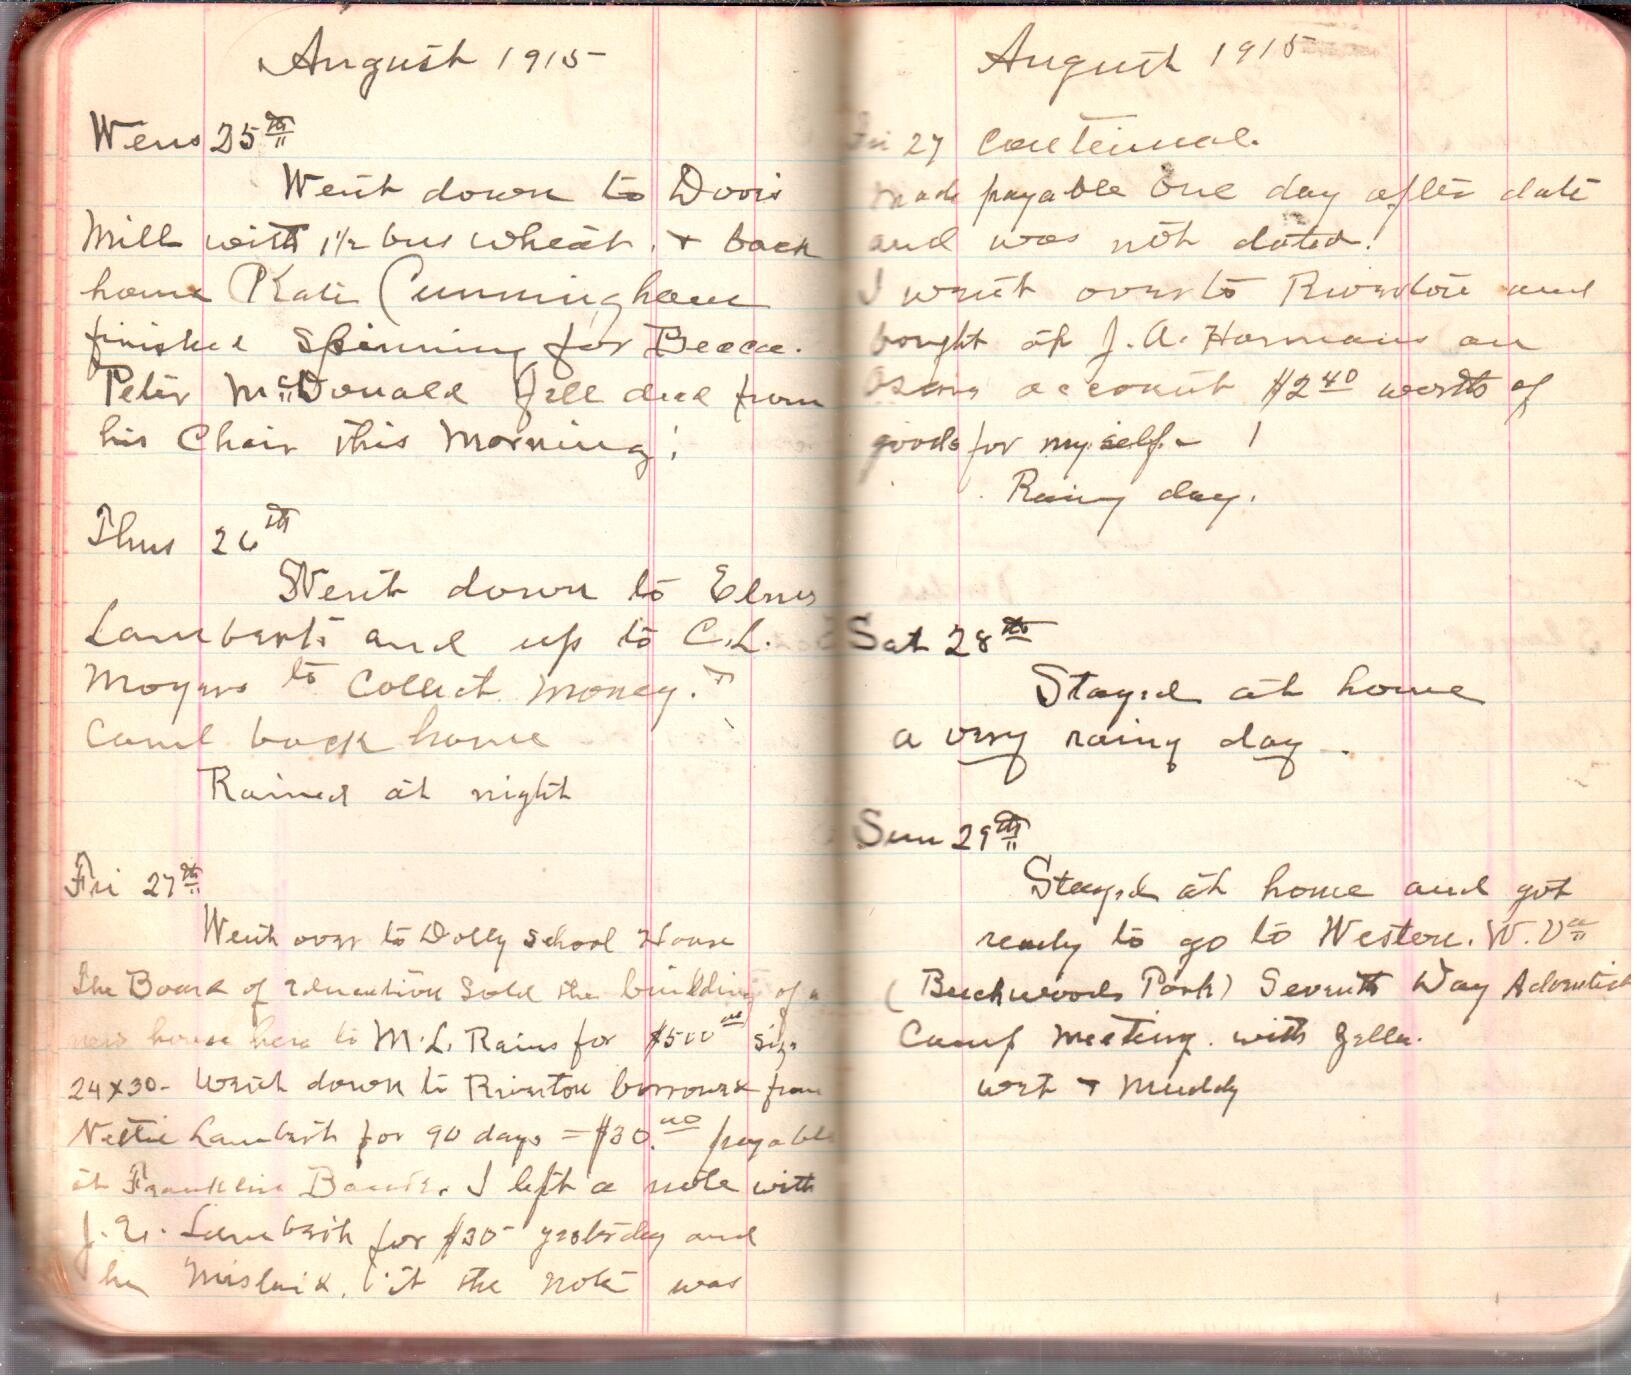 August 1915
Wens 25th
Went down to Dovis
Mill with 1 1/2 bus wheat. + back
home Kate Cunningham
finished Spinning for Becca.
Peter McDonald fell ded from
his Chair this Morning!
Thus 26th
Went down to Elmer
Lamberts and up to C.L.
Moyers to Collect money.
Came back home
Rained at night
Fri 27th
Went over to Dolly School House
The Board of Education Sold the building of a
new house here to M.L. Rains for $500.00 size
24x30- Went down to Riverton borrowed from
Nettie Lambert for 90 days = $30.00 payable
at Franklin Bank. I left a note with
J. E. Lambert for $30 yesterday and
he Mislaid it the note was
August 1915
Fri 27 continued.
Made payable one day after date
and was not dated.
I went over to Riverton and
bought of J. A. Harmans on
account $2.40 worth of
goods for my self. 
Rainy day.
Sat 28th
Stayed at home
a very rainy day.
Sun 29th
Stayed at home and got
ready to go to Western. W. Va
(Buckwoods Park) Seventh Day Adventist
Camp Meeting. with Zella.
wet + Muddy